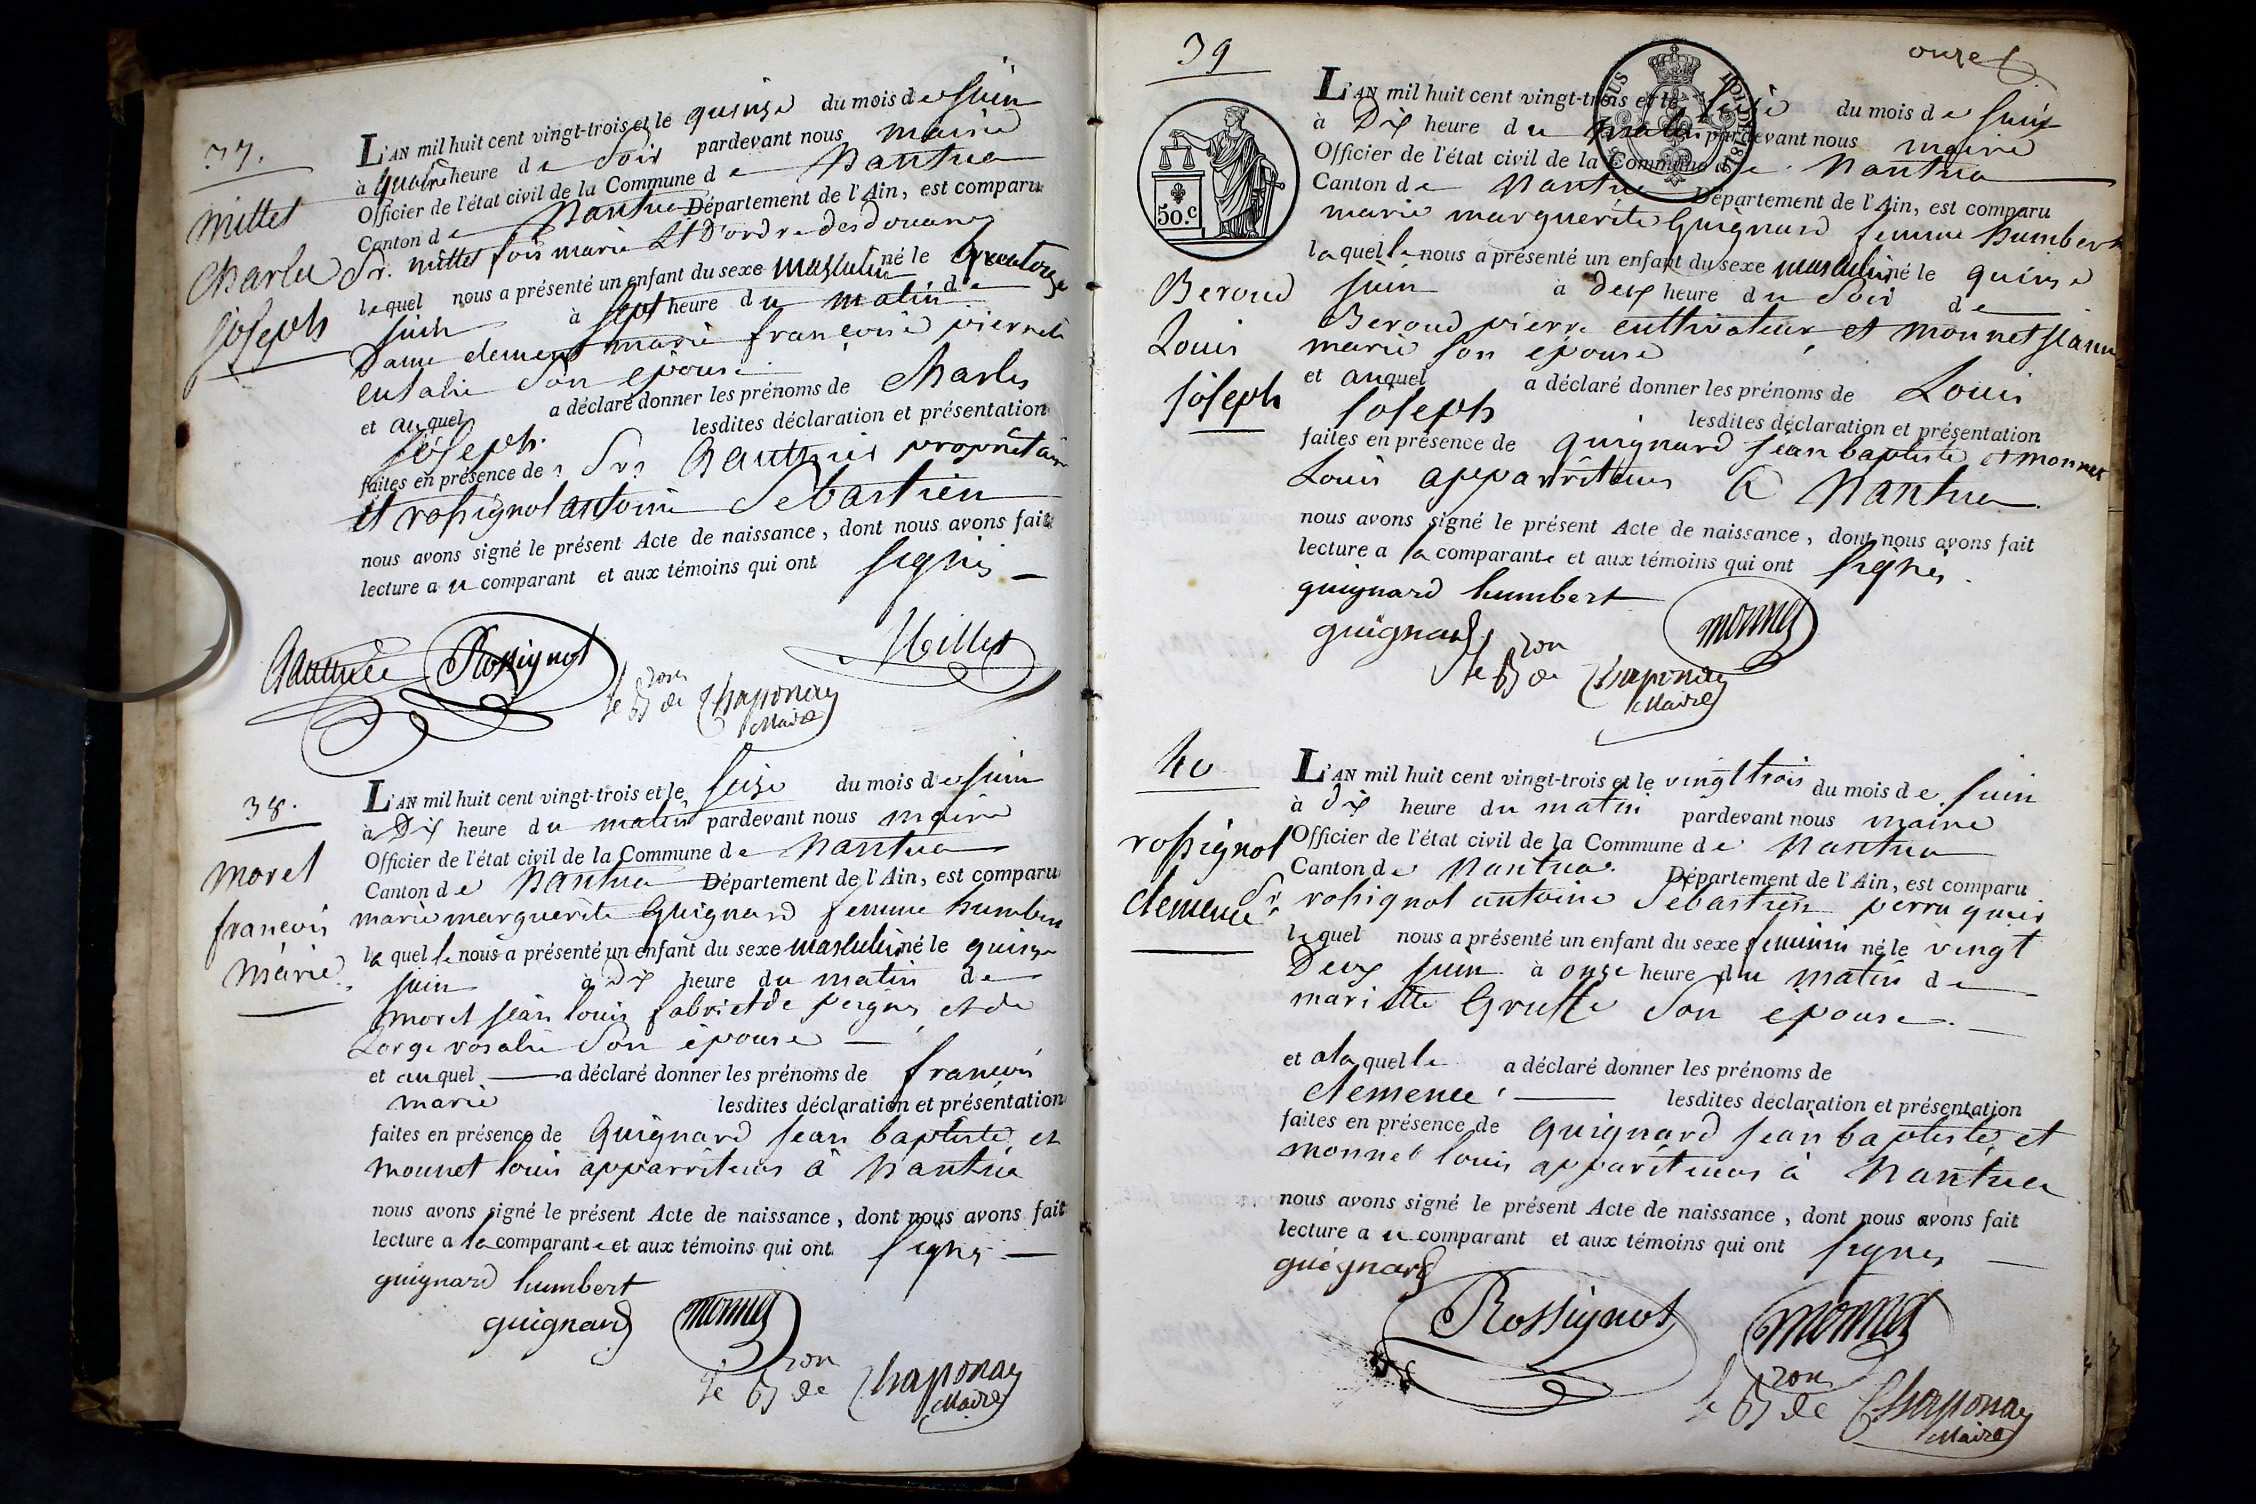 37.
Millet
Charles
Joseph
L'AN mil huit cent vingt-trois et le quinze du mois de Juin
à quatre heure du Soir pardevant nous maire
Officier de l'état civil de la Commune de Nantua
Canton de Nantua Département de l'Ain, est comparu
Sr. Millet fois marie Lt D'ordre des douanes
lequel nous a présenté un enfant du sexe masculin né le quatorze
juin à sept heure du matin de
Dame clement marie françoise pierrette
eulalie son epouse
et auquel a déclaré donner les prénoms de Charles
Joseph. lesdites déclaration et présentation
faites en présence de Srs Gauthier propriétaire
et rossignol antoine Sebastien
nous avons signé le présent Acte de naissance, dont nous avons fait
lecture a u comparant et aux témoins qui ont signés
Rossignol
Millet
le Bon de Chaponay
Maire
38.
moret
françois
marie
L'AN mil huit cent vingt-trois et le seize du mois de Juin
à Dix heure du matin pardevant nous maire
Officier de l'état civil de la Commune de Nantua
Canton de Nantua Département de l'Ain, est comparu
marie marguerite Guignard femme humbert
laquelle nous a présenté un enfant du sexe masculin né le quinze
juin à Dix heure du matin de
moret jean louis fabrict de peignes et de
Lorge rosalie Son épouse
et auquel a déclaré donner les prénoms de françois
marie lesdites déclaration et présentation
faites en présence de Guignard jean baptiste et
monnet louis apparriteurs à Nantua
nous avons signé le présent Acte de naissance, dont nous avons fait
lecture a la comparante et aux témoins qui ont signés
guignard humbert
guignard monnet
le Bon de Chaponay
Maire
39
onze
50.c
Beroud
Louis
joseph
L'AN mil huit cent vingt-trois et le seize du mois de Juin
à Dix heure du matin pardevant nous maire
Officier de l'état civil de la Commune de Nantua
Canton de Nantua Département de l'Ain, est comparu
marie marguerite Guignard femme humbert
laquelle nous a présenté un enfant du sexe masculin né le quinze
juin à deux heure du Soir de
Beroud pierre cultivateur et monnet jeanne
marie son épouse
et auquel a déclaré donner les prénoms de Louis
joseph lesdites déclaration et présentation
faites en présence de Guignard jean baptiste et monnet
Louis apparriteurs à Nantua
nous avons signé le présent Acte de naissance, dont nous avons fait
lecture a la comparante et aux témoins qui ont signés.
guignard humbert
guignard monnet
le Bon de Chaponay
Maire
40
rossignol
clemence
L'AN mil huit cent vingt-trois et le vingt trois du mois de juin
à dix heure du matin pardevant nous maire
Officier de l'état civil de la Commune de Nantua
Canton de Nantua. Département de l'Ain, est comparu
Sr rossignol antoine Sebastien perruquier
lequel nous a présenté un enfant du sexe feminin né le vingt
Deux juin à onze heure du matin de
mariette Son epouse.
et a laquelle a déclaré donner les prénoms de
clemence lesdites déclaration et présentation
faites en présence de Guignard jean baptiste et
monnet louis apparriteurs à Nantua
nous avons signé le présent Acte de naissance, dont nous avons fait
lecture a u comparant et aux témoins qui ont signés
guignard
Rossignol monnet
le Bon de Chaponay
Maire